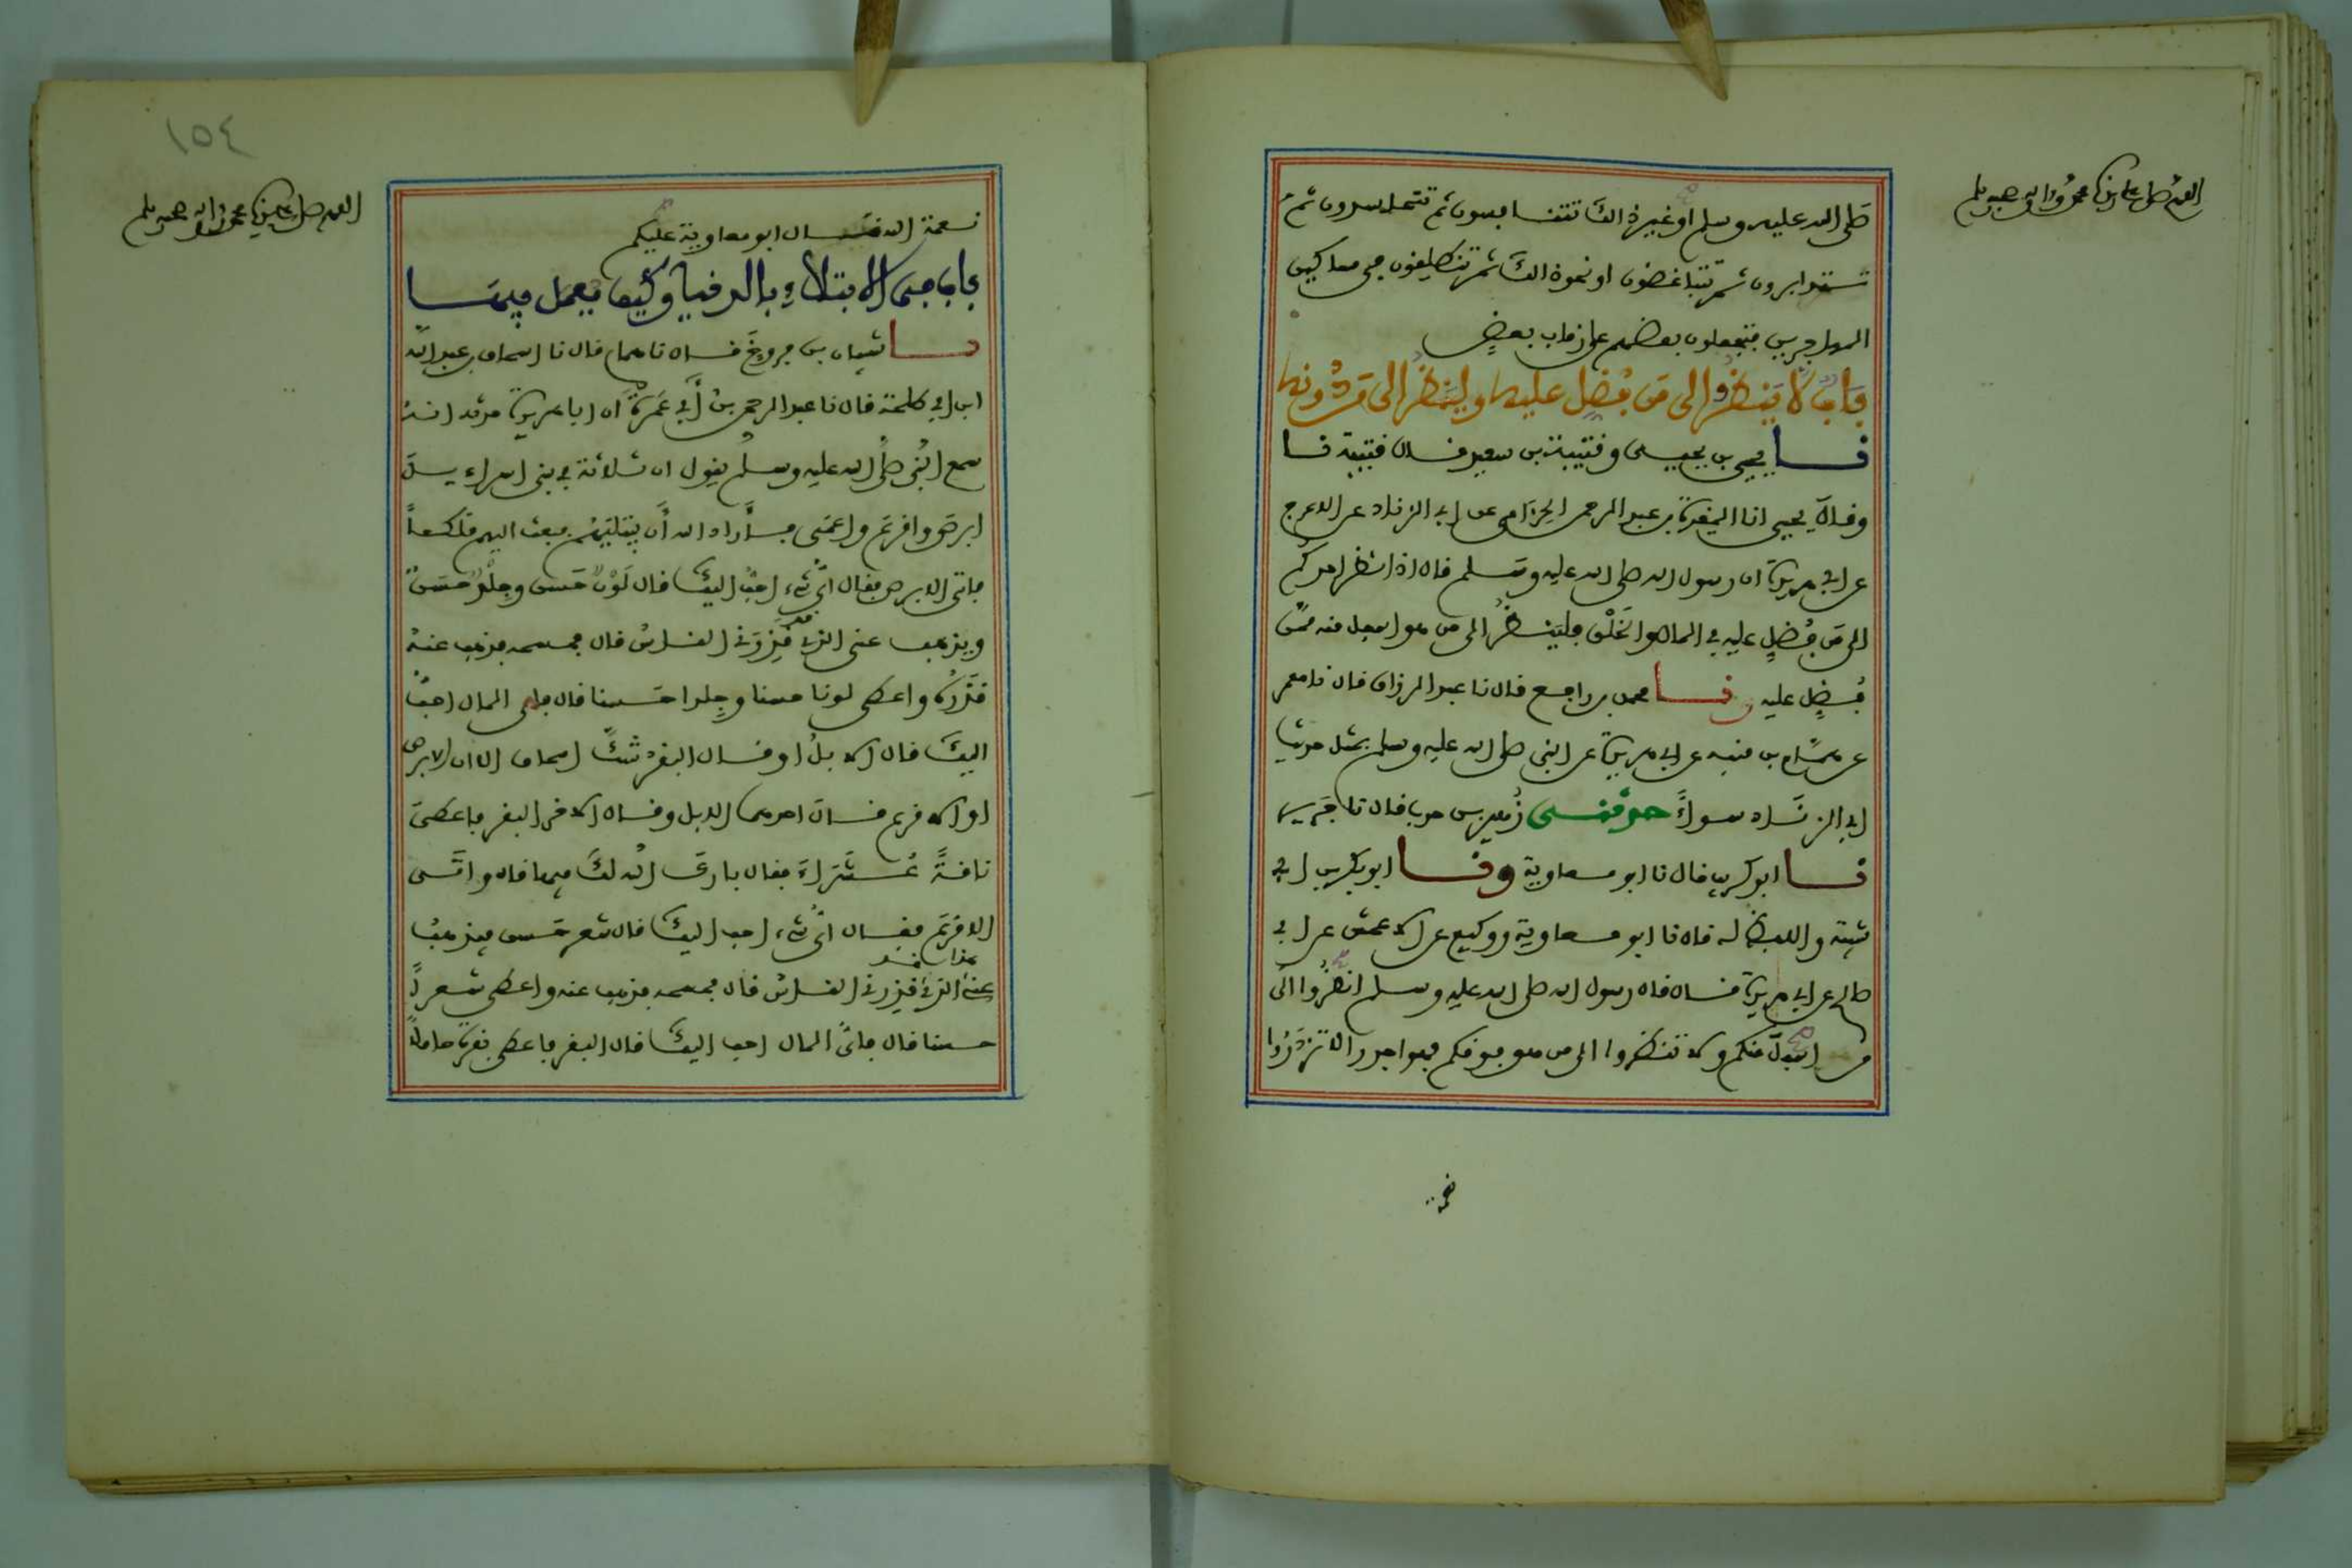 اللهم صل على سيدنا محمد وآله وصحبه وسلم
صلى الله عليه وسلم او غير ذلك تتنافسون ثم تتحاسدون ثم
تتدابرون ثم تتباغضون او نحو ذلك ثم تنطلقون في مساكين
المهاجرين فتجعلون بعضهم على رقاب بعضٍ
بابٌ لا يَنظُروا الى مَن فُضِل عليه ولينظُر الى مَن دُونه
نا يحيى بن يحيى وقتيبة بن سعيد قال قتيبة نا
وقال يحيى انا المغيرة بن عبد الرحمن الحِزامي عن ابي الزناد عن الاعرج
عن ابي هريرة ان رسول الله صلى الله عليه وسلم قال اذا نظر احدكم
الى مَن فُضِل عليه في المال والخَلْق فلينظُر الى من هو اسفل منه ممن
فُضِل عليه ونا محمد بن رافع قال نا عبد الرزاق قال نا معمر
عن همّام بن منبه عن ابي هريرة عن النبي صلى الله عليه وسلم بمثل حديث
ابي الزناد سواءً حدثنى زُهير بن حرب قال نا جَرير
نا ابو كريب قال نا ابو معاوية ونا ابو بكر بن ابي
شيبة واللفظ له قال نا ابو معاوية ووكيع عن الاعمش عن ابي
صالح عن ابي هريرة قال قال رسول الله صلى الله عليه وسلم انظُروا الى
من اسفل منكم ولا تنظروا الى من هو فوقكم فهو اجدر الا تزدَرُوا
اللهم صل على سيدنا محمد وآله وصحبه وسلم
١٥٤
نعمة الله قال ابو معاوية عليكم
باب في الابتلاءِ بالدنيا وكيف يعمل فيها
نا شيبان بن فروخَ قال نا همام قال نا اسحاق بن عبد الله
ابن ابي طلحة قال نا عبد الرحمن بنُ أَبي عَمرَةَ أن ابا هريرة حدثه انه
سمع النبي صلى الله عليه وسلم يقول ان ثلاثة في بني اسراءيل
ابرص واقرعَ واعمَى فأراد الله أَن يبتليَهُم فبعث اليهم مَلَكاً
فاتى الابرص فقال أيُّ شيءٍ احبُّ اليكَ قال لَوْنٌ حَسن وجِلْدٌ حَسَنٌ
ويذهب عني الذي قَذِرَني الناسُ قال فمسحه فذهب عنهُ
قَذَرُه واعطي لونا حسنا وجِلدا حَسنا قال فاي المال احبُّ
اليكَ قال الابلُ او قال البقرُ شكَّ اسحاق الا ان الابرص
او الاقرع قال احدهما الابل وقال الاخر البقر فاعطيَ
ناقةً عُشَراءَ فقال باركَ الله لكَ فيها قال واتى
الاقرعَ فقال أيُّ شيءٍ احب اليكَ قال شعر حَسن ويذهبُ
عني هذا الذي قذِرني الناسُ قال فمسحه فذهب عنه واعطي شعراً
حسنا قال فايُّ المال احب اليكَ قال البقر فاعطي بقرة حاملاً